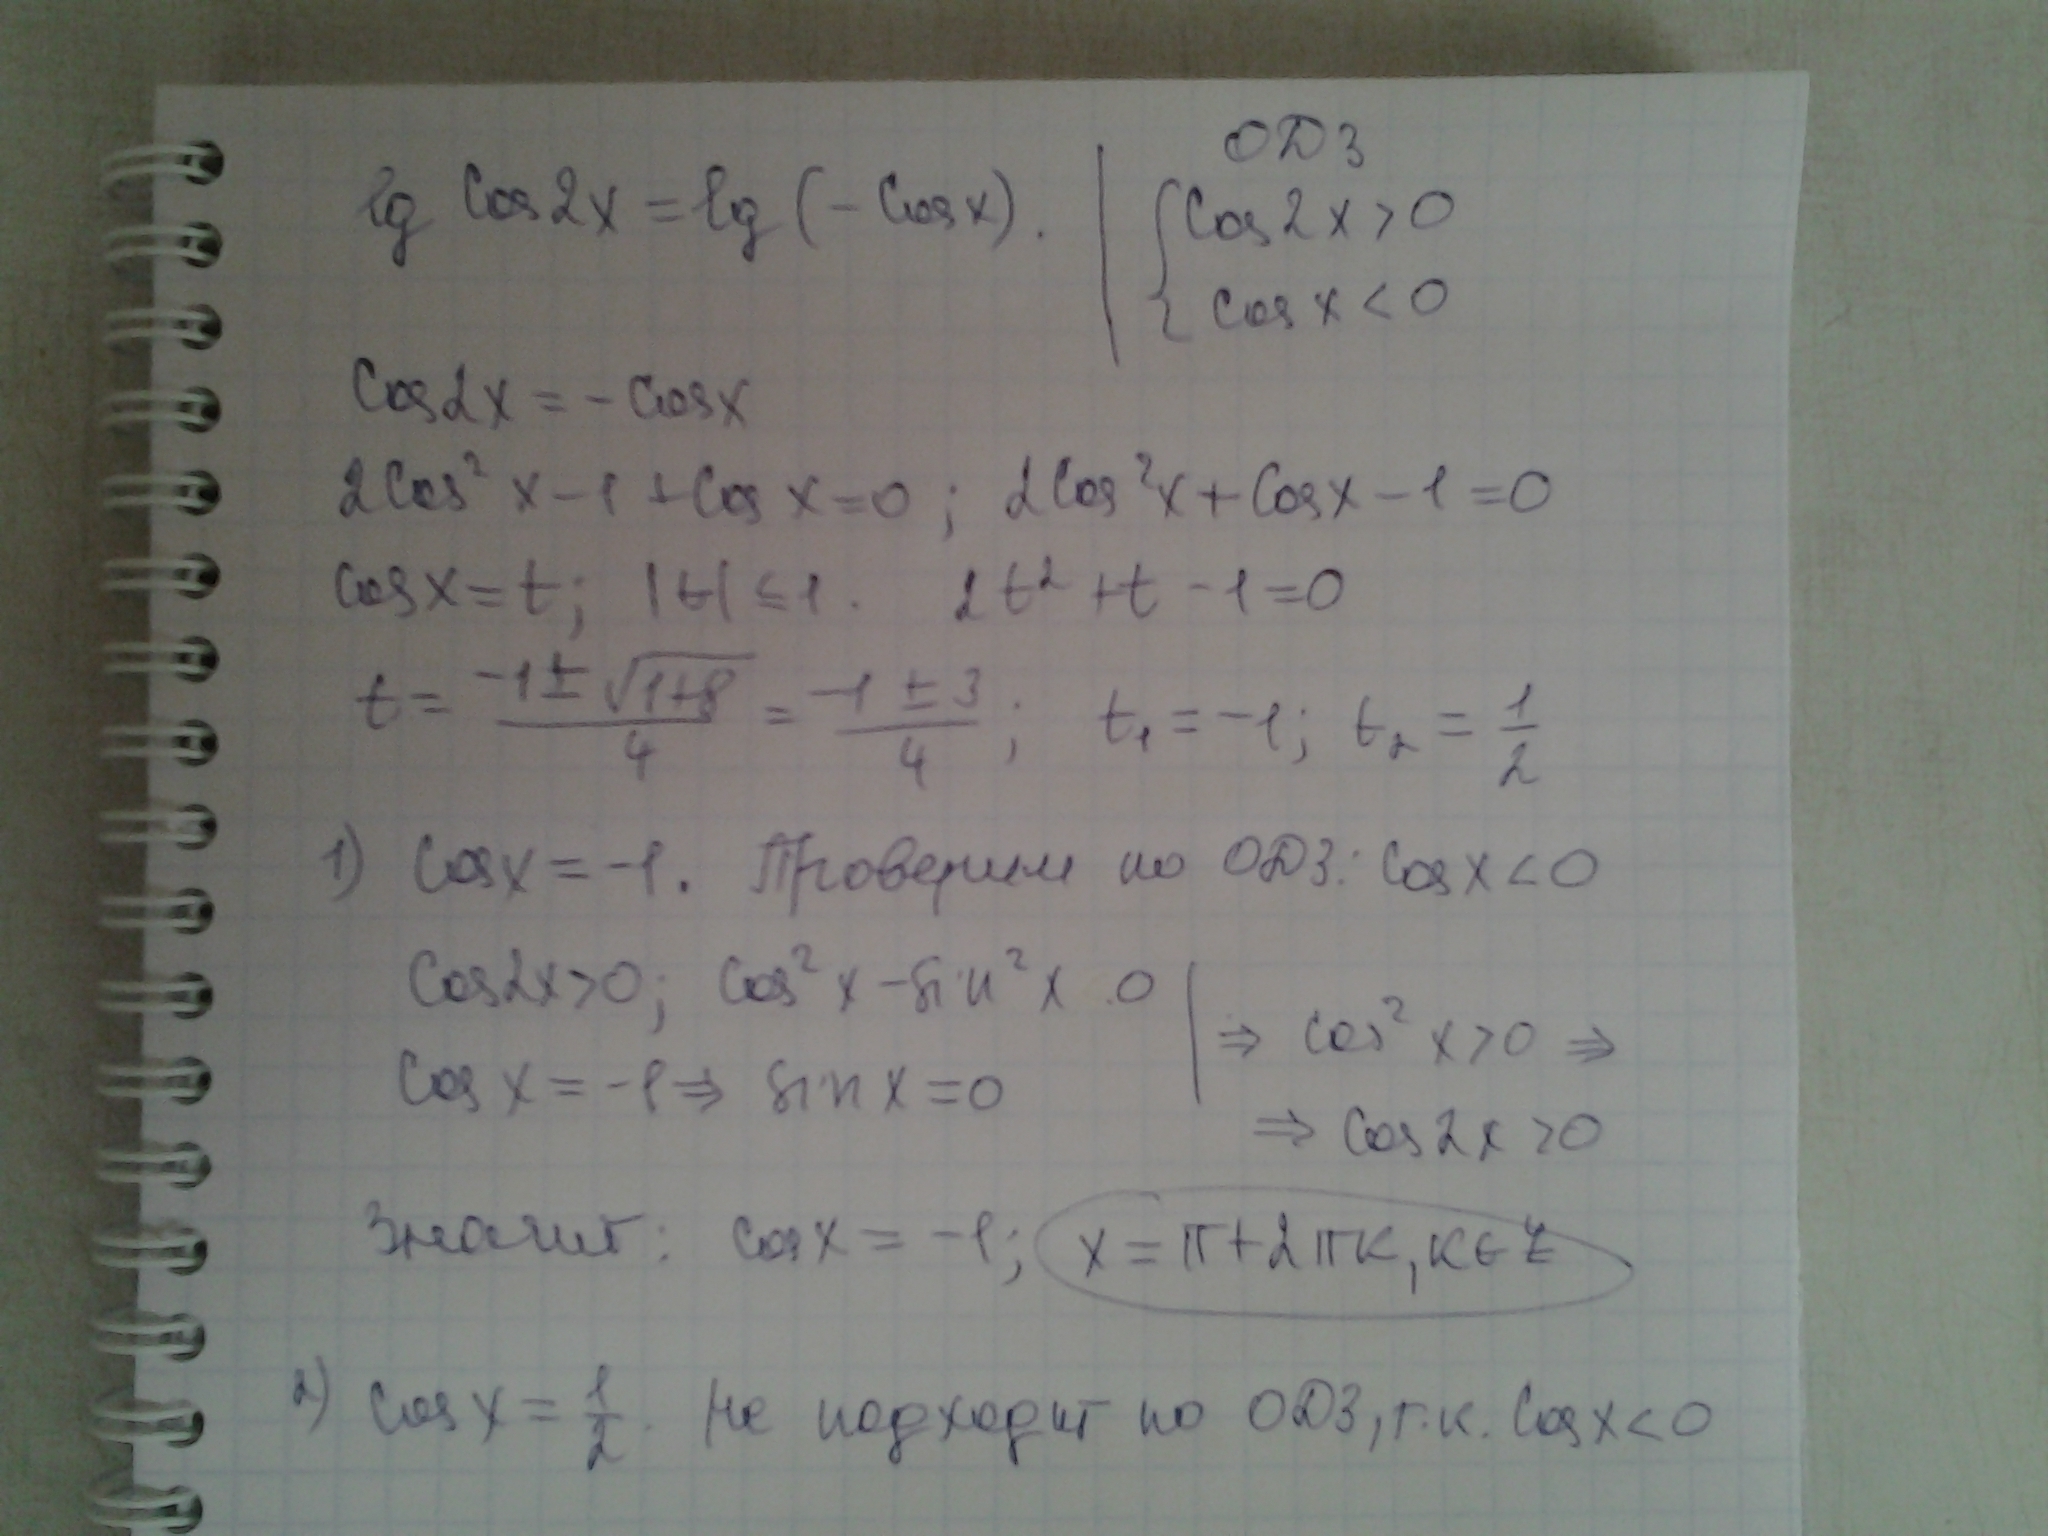 lg cos2x = lg (- cosx).
ОДЗ
{ cos2x > 0
{ cosx < 0
cos2x = - cosx
2cos² x - 1 + cos x = 0 ; 2cos²x + cosx - 1 = 0
cosx = t; |t| ≤ 1. 2t² + t - 1 = 0
t = (-1 ± √(1+8))/4 = (-1 ± 3)/4 ; t₁ = -1; t₂ = 1/2
1) cosx = -1. Проверим по ОДЗ: cosx < 0
cos2x > 0; cos² x - sin² x 0
cos x = -1 ⇒ sin x = 0
⇒ cos² x > 0 ⇒
⇒ cos2x > 0
Значит: cosx = -1; x = π + 2πк, к ∈ Z
2) cos x = 1/2. Не подходит по ОДЗ, т.к. cosx < 0